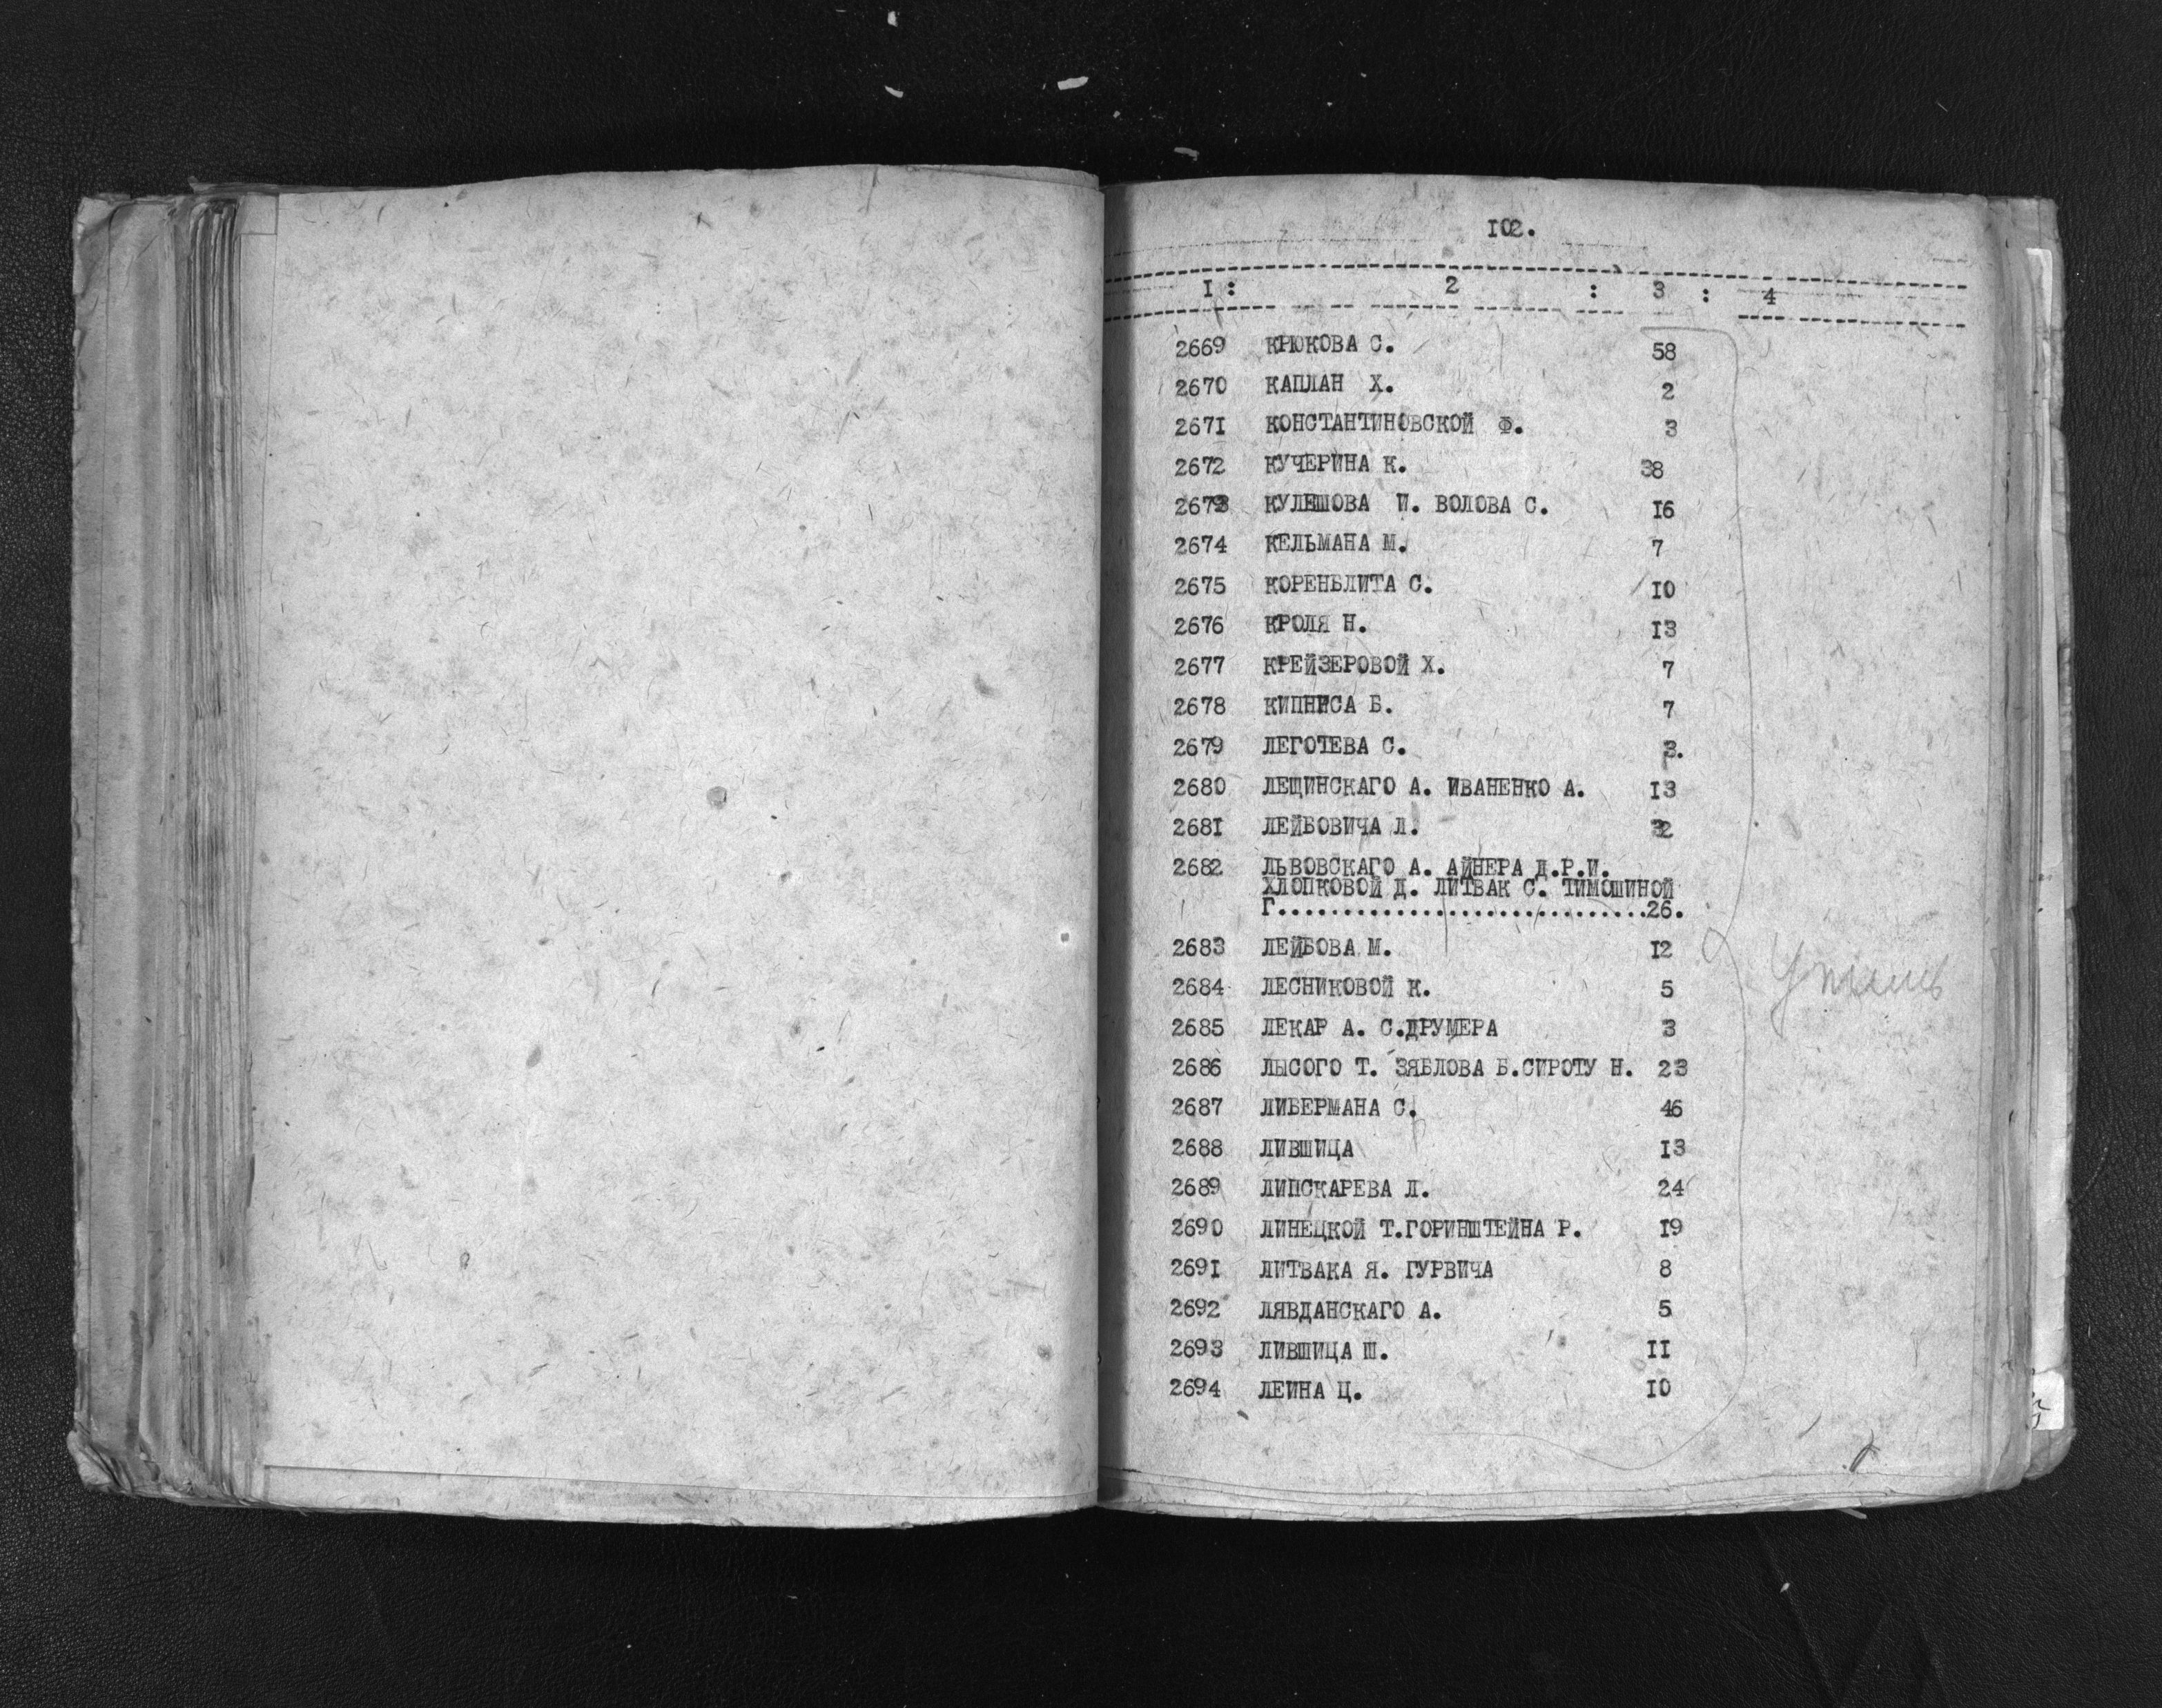 102.
1 : 2 : 3 : 4
2669 КРЮКОВА С. 58
2670 КАПЛАН Х. 2
2671 КОНСТАНТИНОВСКОЙ Ф. 3
2672 КУЧЕРИНА К. 38
2673 КУЛЕШОВА И. ВОЛОВА С. 16
2674 КЕЛЬМАНА М. 7
2675 КОРЕНБЛИТА С. 10
2676 КРОЛЯ Н. 13
2677 КРЕЙЗЕРОВОЙ Х. 7
2678 КИПНИСА Б. 7
2679 ЛЕГОТЕВА С. 3.
2680 ЛЕЩИНСКАГО А. ИВАНЕНКО А. 13
2681 ЛЕЙБОВИЧА Л.
2682 ЛЬВОВСКАГО А. АЙНЕРА Д.Р.И.
ХЛОПКОВОЙ Д. ЛИТВАК С. ТИМОШИНОЙ
Г..............................26.
2683 ЛЕЙБОВА М. 12
2684 ЛЕСНИКОВОЙ К. 5
2685 ЛЕКАР А. С.ДРУМЕРА 3
2686 ЛЫСОГО Т. ЗЯБЛОВА Б.СИРОТУ Н. 23
2687 ЛИБЕРМАНА С. 46
2688 ЛИВШИЦА 13
2689 ЛИПСКАРЕВА Л. 24
2690 ЛИНЕЦКОЙ Т.ГОРИНШТЕЙНА Р. 19
2691 ЛИТВАКА Я. ГУРВИЧА 8
2692 ЛЯВДАНСКАГО А. 5
2693 ЛИВШИЦА Ш. 11
2694 ЛЕИНА Ц. 10